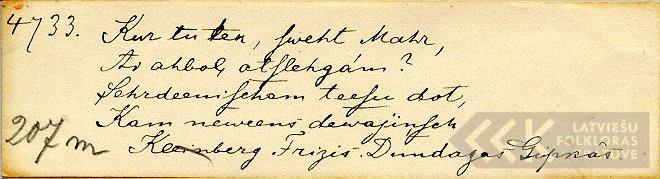 4733. Kur tu ten, ſweht Mahr,
Ar ahboļ atſlehgám?
Sehrdeeniſcham teeſu dot,
Kam neweens dewajinſch
207 m Kleinberg Frizis. Dundagas Gipkas
LATVIEŠU
FOLKLORAS